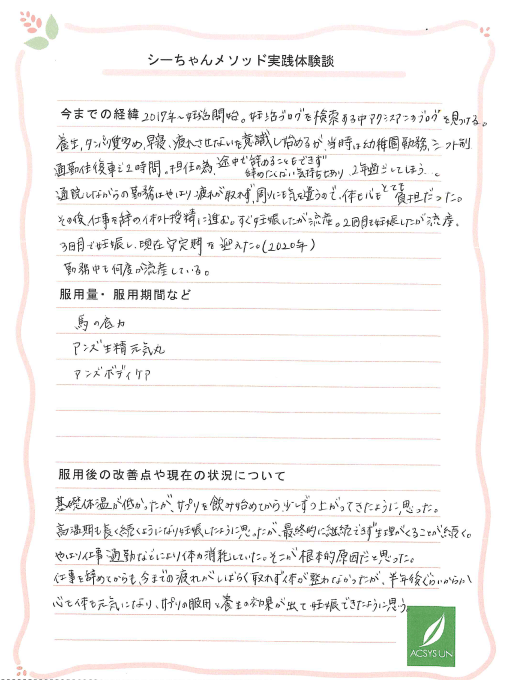 シーちゃんメソッド実践体験談
今までの経緯 2017年〜妊活開始。妊活ブログを検索する中アクシスアンのブログを見つける。
養生,タンパク質多め,早寝、疲れさせないを意識し始めるが、当時は幼稚園勤務,シフト制
通勤往復車で2時間。担任の為、途中で辞めることもできず
辞めたくない気持ちもあり 2年過ごしてしまう…。
通院しながらの勤務はやはり疲れが取れず,周りにも気を遣うので、体も心もとても負担だった。
その後、仕事を辞め体外授精に進む。すぐ妊娠したが流産。2回目も妊娠したが流産。
3回目で妊娠し、現在安定期を迎えた。(2020年)
勤務中も何度か流産している。
服用量・服用期間など
馬の底力
アンズ生精元気丸
アンズボディケア
服用後の改善点や現在の状況について
基礎体温が低かったが、サプリを飲み始めてから少しずつ上がってきたように思った。
高温期も長く続くようになり妊娠したように思ったが、最終的に継続できず生理がくることが続く。
やはり仕事通勤などにより体力消耗していた。そこが根本的原因だと思った。
仕事を辞めてからも、今までの疲れがしばらく取れず体が整わなかったが、半年後くらいから
心も体も元気になり、サプリの服用と養生の効果が出て妊娠できたように思う。
ACSYSUN